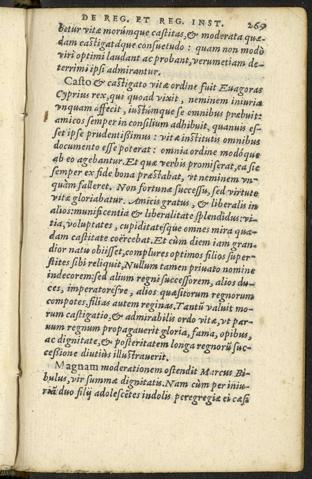 DE REG. ET REG. INST. 269
betur vitæ morúmque castitas, & moderata quæ-
dam castigatáque consuetudo : quam non modò
viri optimi laudant ac probant, verumetiam de-
terrimi ipsi admirantur.
Casto & castigato vitæ ordine fuit Euagoras
Cyprius rex, qui quoad vixit, neminem iniuria
vnquam affecit, iustúmque se omnibus præbuit:
amicos semper in consilium adhibuit, quanuis es-
set ipse prudentissimus : vitæ institutis omnibus
documento esse poterat : omnia ordine modóque
ab eo agebantur. Et quæ verbis promiserat, ea sic
semper ex fide bona præstabat, vt neminem vn-
quàm falleret. Non fortunæ successu, sed virtute
vitæ gloriabatur. Amicis gratus, & liberalis in
alios: munificentia & liberalitate splendidus: vi-
tia, voluptates, cupiditatésque omnes mira qua-
dam castitate coërcebat. Et cùm diem iam gran-
dior natu obiisset, complures optimos filios super-
stites sibi reliquit, Nullum tamen priuato nomine
indecorem: sed alium regni successorem, alios du-
ces, imperatorésve, alios quæsitorum regnorum
compotes, filias autem reginas. Tantũ valuit mo-
rum castigatio, & admirabilis ordo vitæ, vt par-
uum regnum propagauerit gloria, fama, opibus,
ac dignitate, & posteritatem longa regnorũ suc-
cessione diutiùs illustrauerit.
Magnam moderationem ostendit Marcus Bi-
bulus, vir summæ dignitatis. Nam cùm per iniu-
riã duo filij adolescẽtes indolis peregregiæ ei cæsi